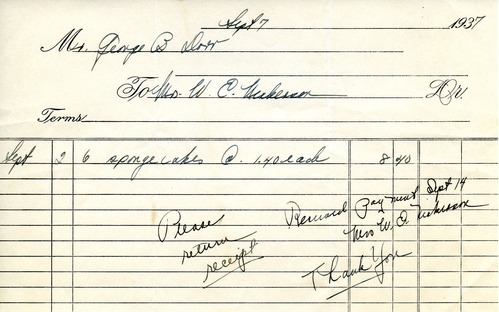 Sept 7 1937
Mr. George B Dorr
To Mrs. W. E. Nickerson Dr.
Terms
Sept 2 6 sponge cakes @ 1.40 each 8 40
Please return receipt
Received Payment Sept 14
Mrs W. E. Nickerson
Thank You